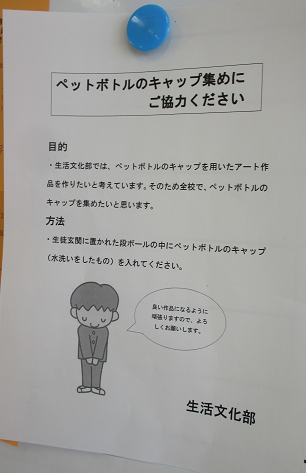 ペットボトルのキャップ集めに
ご協力ください
目的
・生活文化部では、ペットボトルのキャップを用いたアート作
品を作りたいと考えています。そのため全校で、ペットボトルの
キャップを集めたいと思います。
方法
・生徒玄関に置かれた段ボールの中にペットボトルのキャップ
（水洗いをしたもの）を入れてください。
良い作品になるように
頑張りますので、よろ
しくお願いします。
生活文化部